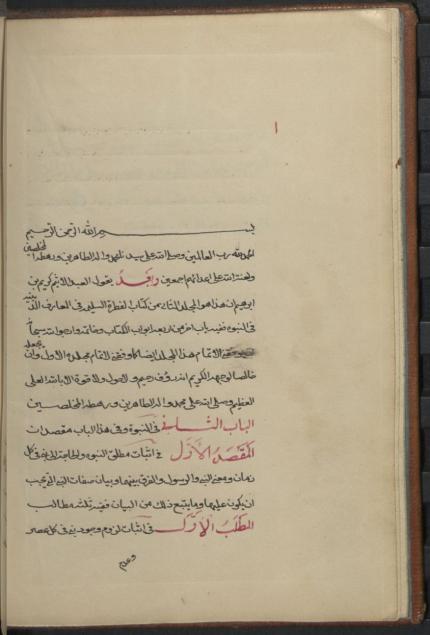 ١
بسم الله الرحمن الرحيم
الحمد لله رب العالمين وصلى الله على سيدنا محمد وآله الطاهرين ورهطه المخلصين
ولعنة الله على اعدائهم اجمعين وبعد يقول العبد الاثيم كريم بن
ابرهيم ان هذا هو المجلد الثاني من كتاب الفطرة السليمة في المعارف الدينية
في النبوة فيه باب اخر من ابواب الكتاب
الاتمام هذا المجلد ايضا كما وفقني لاتمام مجلد الاول وان يجعله
خالصا لوجهه الكريم انه رؤف رحيم ولا حول ولا قوة الا بالله العلي
العظيم وصلى الله على محمد وآله الطاهرين ورهطه المخلصين
الباب الثاني في النبوة وفي هذا الباب مقصدان
المقصد الاول في اثبات مطلق النبوة والحاجة اليه في كل
زمان ومعنى النبي والرسول والفرق بينهما وبيان صفات النبي التي يجب
ان يكون عليها وما يتبع ذلك من البيان ففيه ثلثة مطالب
المطلب الاول في اثبات لزوم وجود نبي في كل عصر
وعدم